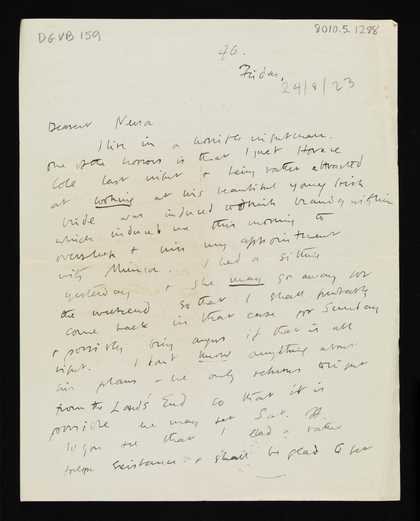 DGVB 159
8010.5.1288
46.
Friday,
24/8/23
Dearest Nessa
I live in a horrible nightmare.
one of the horrors is that I met Horace
Cole last night & being rather attracted
at looking at his beautiful young Irish
bride was induced to drink brandy with him
which induced me this morning to
oversleep & miss my appointment
with Minna. I had a sitting
yesterday & she may go away for
the weekend so that I shall probably
come back in that case for Sunday
& possibly bring Angus if that is all
right. I don't know anything about
his plans & he only returns tonight
from the Land's End so that it is
possible he may not Sat.
to you see that I lead a rather
existence & shall be glad to get